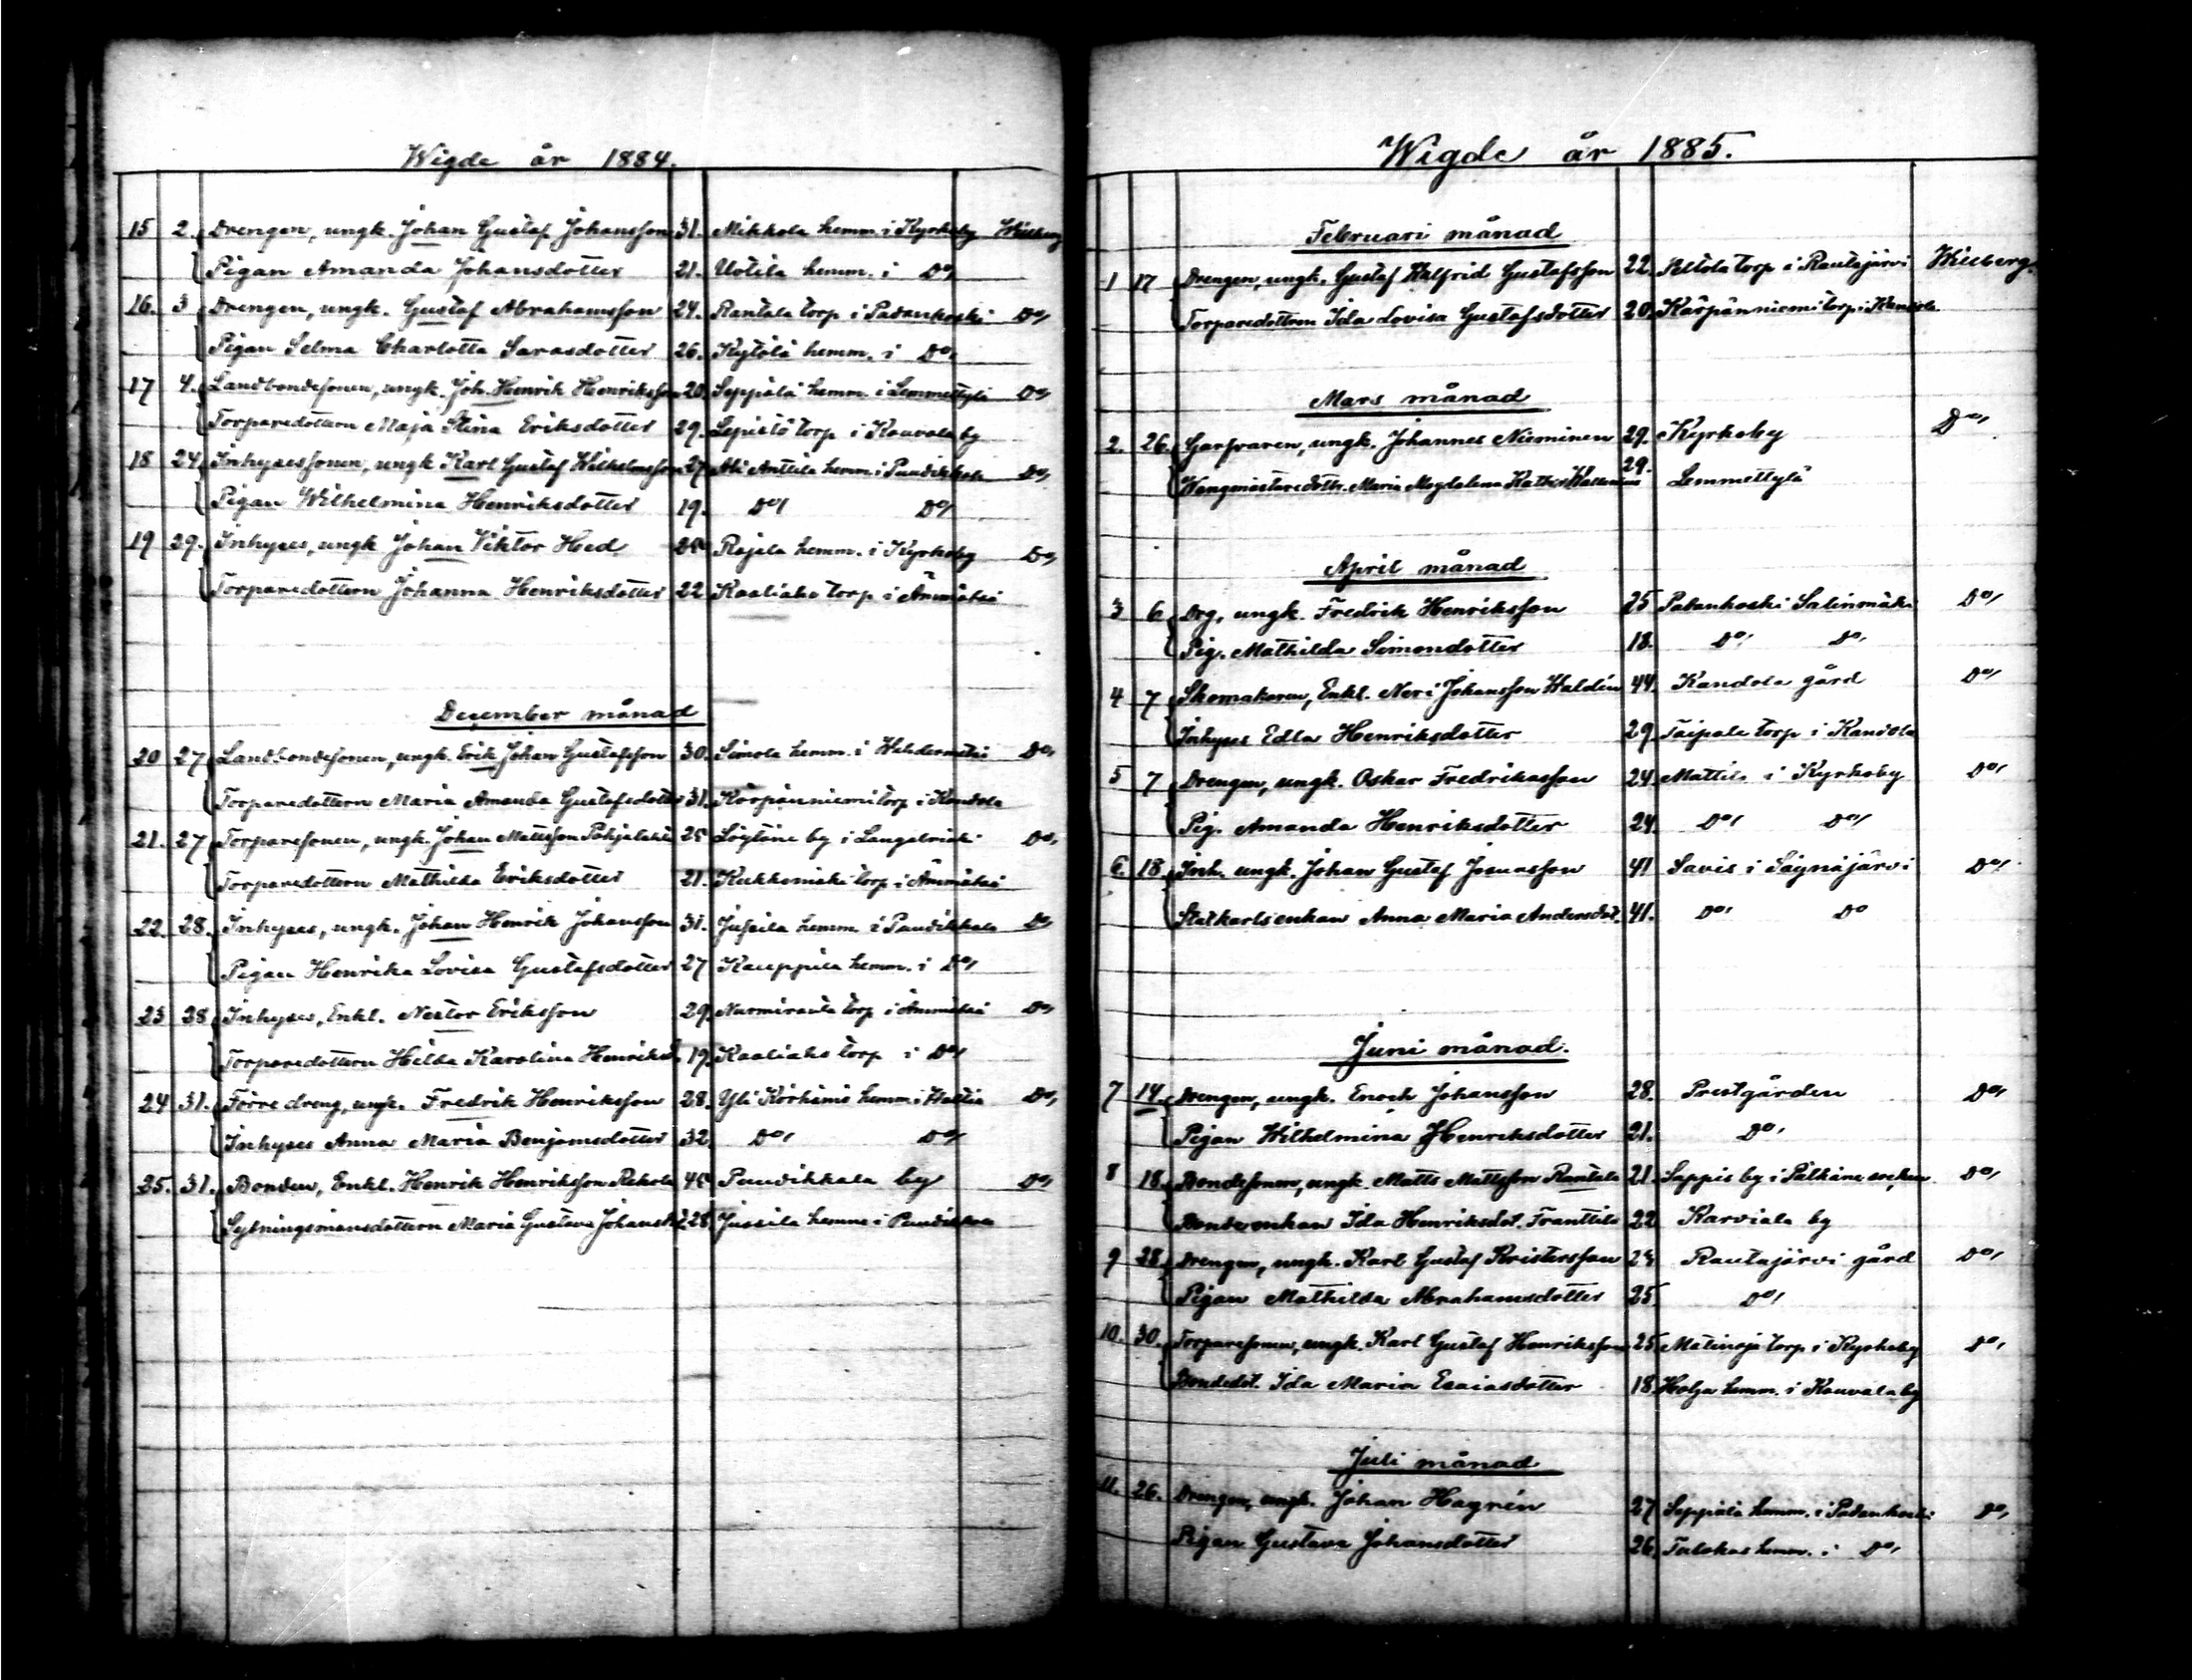 Wigde år 1884.
15 2. Drengen, ungk. Johan Gustaf Johansson 31. Mikkola hemm. i Kyrkoby
Pigan Amanda Johansdotter 21. Uotila hemm. i Do,
16. 3 Drengen, ungk. Gustaf Abrahamsson 24. Rantala torp i Padankoski Do,
Pigan Selma Charlotta Sarasdotter 26. Kytölä hemm. i Do,
17 4. Landbondesonen, ungk. Joh. Henrik Henriksson 20. Seppälä hemm. i Lemmettylä Do,
Torparedottern Maja Stina Eriksdotter 29. Lepistö torp i Kouvala by
18 24. Inhysessonen, ungk Karl Gustaf Wilhelmsson 27 Ali Anttila hemm. i Puudikkala Do,
Pigan Wilhelmina Henriksdotter 19. Do, Do,
19 29. Inhyses, ungk Johan Viktor Hed Rajala hemm. i Kyrkoby Do,
Torparedottern Johanna Henriksdotter 22 Kaaliaho torp i Ämmätsä
December månad
20 27 Landbondesonen, ungk. Erik Johan Gustafsson 30. Simola hemm. i Do,
Torparedottern Maria Amanda Gustafsdotter 31. Kärpänniemi torp i Kandola
21. 27 Torparesonen, ungk. Johan Mattsson Löytäne by i Längelmäki Do,
Torparedottern Mathilda Eriksdotter 21. torp i Ämmätsä
22. 28. Inhyses, ungk. Johan Henrik Johansson 31. Jussila hemm. i Puudikkala Do
Pigan Henrika Lovisa Gustafsdotter 27 Kauppila hemm. i Do,
23 28 Inhyses, Enkl. Nestor Eriksson 29. Nurmiranta torp i Ämmätsä Do,
Torparedottern Hilda Karolina 19. Kaaliaho torp i Do,
24 31. dreng, ungk. Fredrik Henriksson 28. Yli hemm. i Do,
Inhyses Anna Maria Benjamsdotter 32 Do, Do,
25. 31. Bonden, Enkl. Henrik Henriksson Rekola Puudikkala by Do,
Sytningsmansdottern Maria Gustava 28 Jussila hemm. i Puudikkala
Wigde år 1885.
Februari månad
1 17 Drengen, ungk. Gustaf Walfrid Gustafsson 22. Peltola torp i Rautajärvi
Torparedottern Ida Lovisa Gustafsdotter 20. Kärpänniemi torp i Kandola
Mars månad
2. 26. Garfvaren, ungk. Johannes Nieminen 29. Kyrkoby Do,
Maria Magdalena 29. Lemmettylä
April månad
3 6 Drg, ungk. Fredrik Henriksson 25 Padankoski Salinmäki Do,
Pig. Mathilda Simonsdotter 18. Do, Do,
4 7 Skomakaren, Enkl. Neri Johansson Waldén 44. Kandola gård Do,
Inhyses Edla Henriksdotter 29 Taipale torp i Kandola
5 7 Drengen, ungk. Oskar Fredriksson 24. Mattila i Kyrkoby Do,
Pig. Amanda Henriksdotter 24. Do, Do,
6. 18. Inh. ungk. Johan Gustaf Josuasson 41 Savis i Säynäjärvi Do,
Statkarlsenkan Anna Maria Andersdot. 41. Do, Do
Juni månad.
7 14. Drengen, ungk. Enoch Johansson 28. Prestgården Do,
Pigan Wilhelmina Henriksdotter 21. Do,
8 18. Bondesonen, ungk. Matts Mattsson Rantala 21. Sappis by i Pälkäne socken Do,
Bondeenkan Ida Henriksdot. Franttila 22 Karviala by
9 28. Drengen, ungk. Karl Gustaf Kristersson Rautajärvi gård Do,
Pigan Mathilda Abrahamsdotter 25. Do,
10. 30. Torparesonen, ungk. Karl Gustaf Henriksson 25. Matinoja torp i Kyrkoby Do,
Bondedot. Ida Maria Esaiasdotter 18. Holja hemm. i Kouvala by
Juli månad
11. 26. Drengen, ungk. Johan Hagrén 27 Seppälä hemm. i Padankoski Do,
Pigan Gustava Johansdotter 26. hemm. i Do,